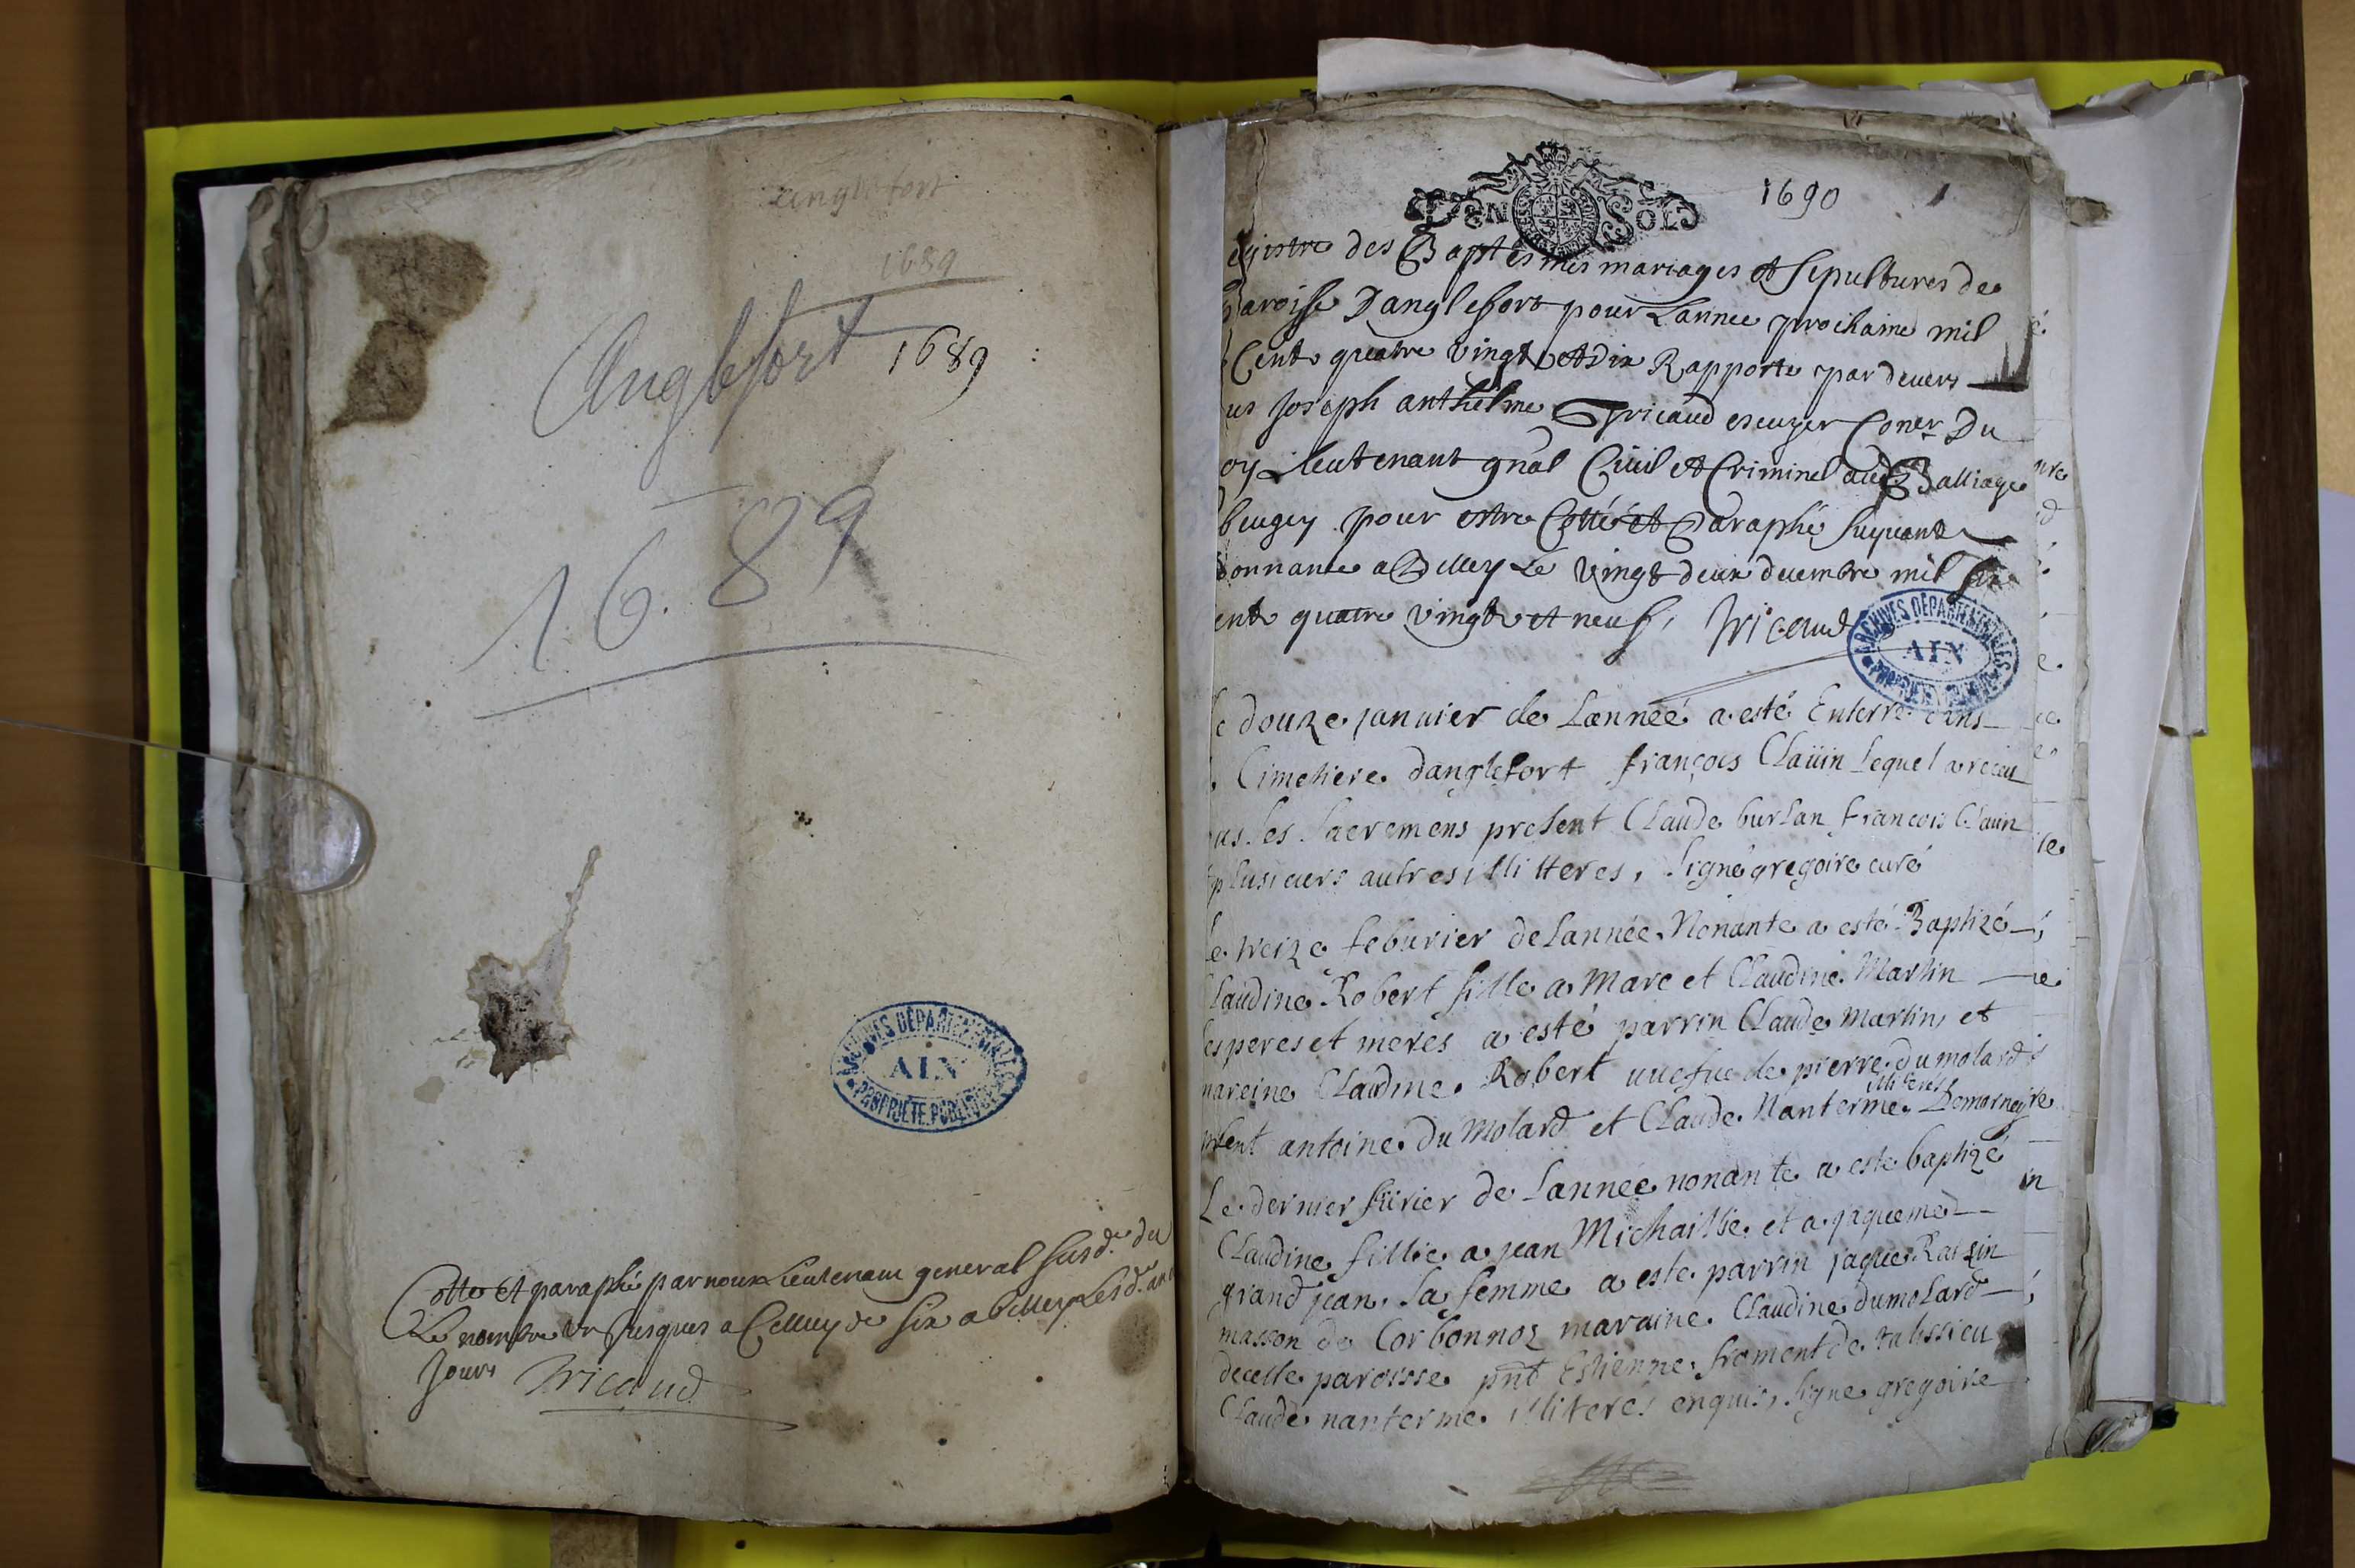 Anglefort
1689
Anglefort 1689
1689
ARCHIVES DÉPARTEMENTALES
AIN
PROPRIÉTÉ PUBLIQUE
Cotté et paraphé par nous Lieutenant general susd. du
Le nombre un jusques a Celluy de six a Belley Lesd. an
Jours Tricaud
DEN SOLS
1690 1
egistre des Baptesmes mariages et sepultures de
paroisse Danglefort pour Lannee prochaine mil
Cents quatre vingt et dix Rapporte par devers
us Joseph anthelme Tricaud escuyer Coner Du
oy Lieutenant gnal Civil et Criminel au Balliage
beugey pour estre Cotté et Paraphé suyvant
donnance a Belley Le vingt deux decembre mil six
ent quatre vingt et neuf, Tricaud
ARCHIVES DÉPARTEMENTALES
AIN
PROPRIÉTÉ PUBLIQUE
le douze janvier de Lannéé a esté Enterré dans
Cimetiere danglefort françois Claüin Lequel a receu
us les sacremens present Claude burlan francois Clauin
plusieurs autres illitteres, signé gregoire curé
le treize feburier de Lannéé Nonante a esté Baptizé
Claudine Robert fille a Marc et Claudine Martin
ses peres et meres a esté parrin Claude Martin et
mareine Claudine Robert vuefue de pierre dumolard
illiterés
present antoine Du Molard et Claude Nanterme Demorneyre
Le dernier fürier de Lannéé nonante a este baptizé
Claudine fillie a jean Michaillie et a jaqueme
grand jean sa femme a este parrin jaque Rassin
masson de Corbonnoz maraine Claudine dumolard
decelle paroisse pnt Estienne froment de talissieu
Claude nanterme illiterés enquis, signe gregoire